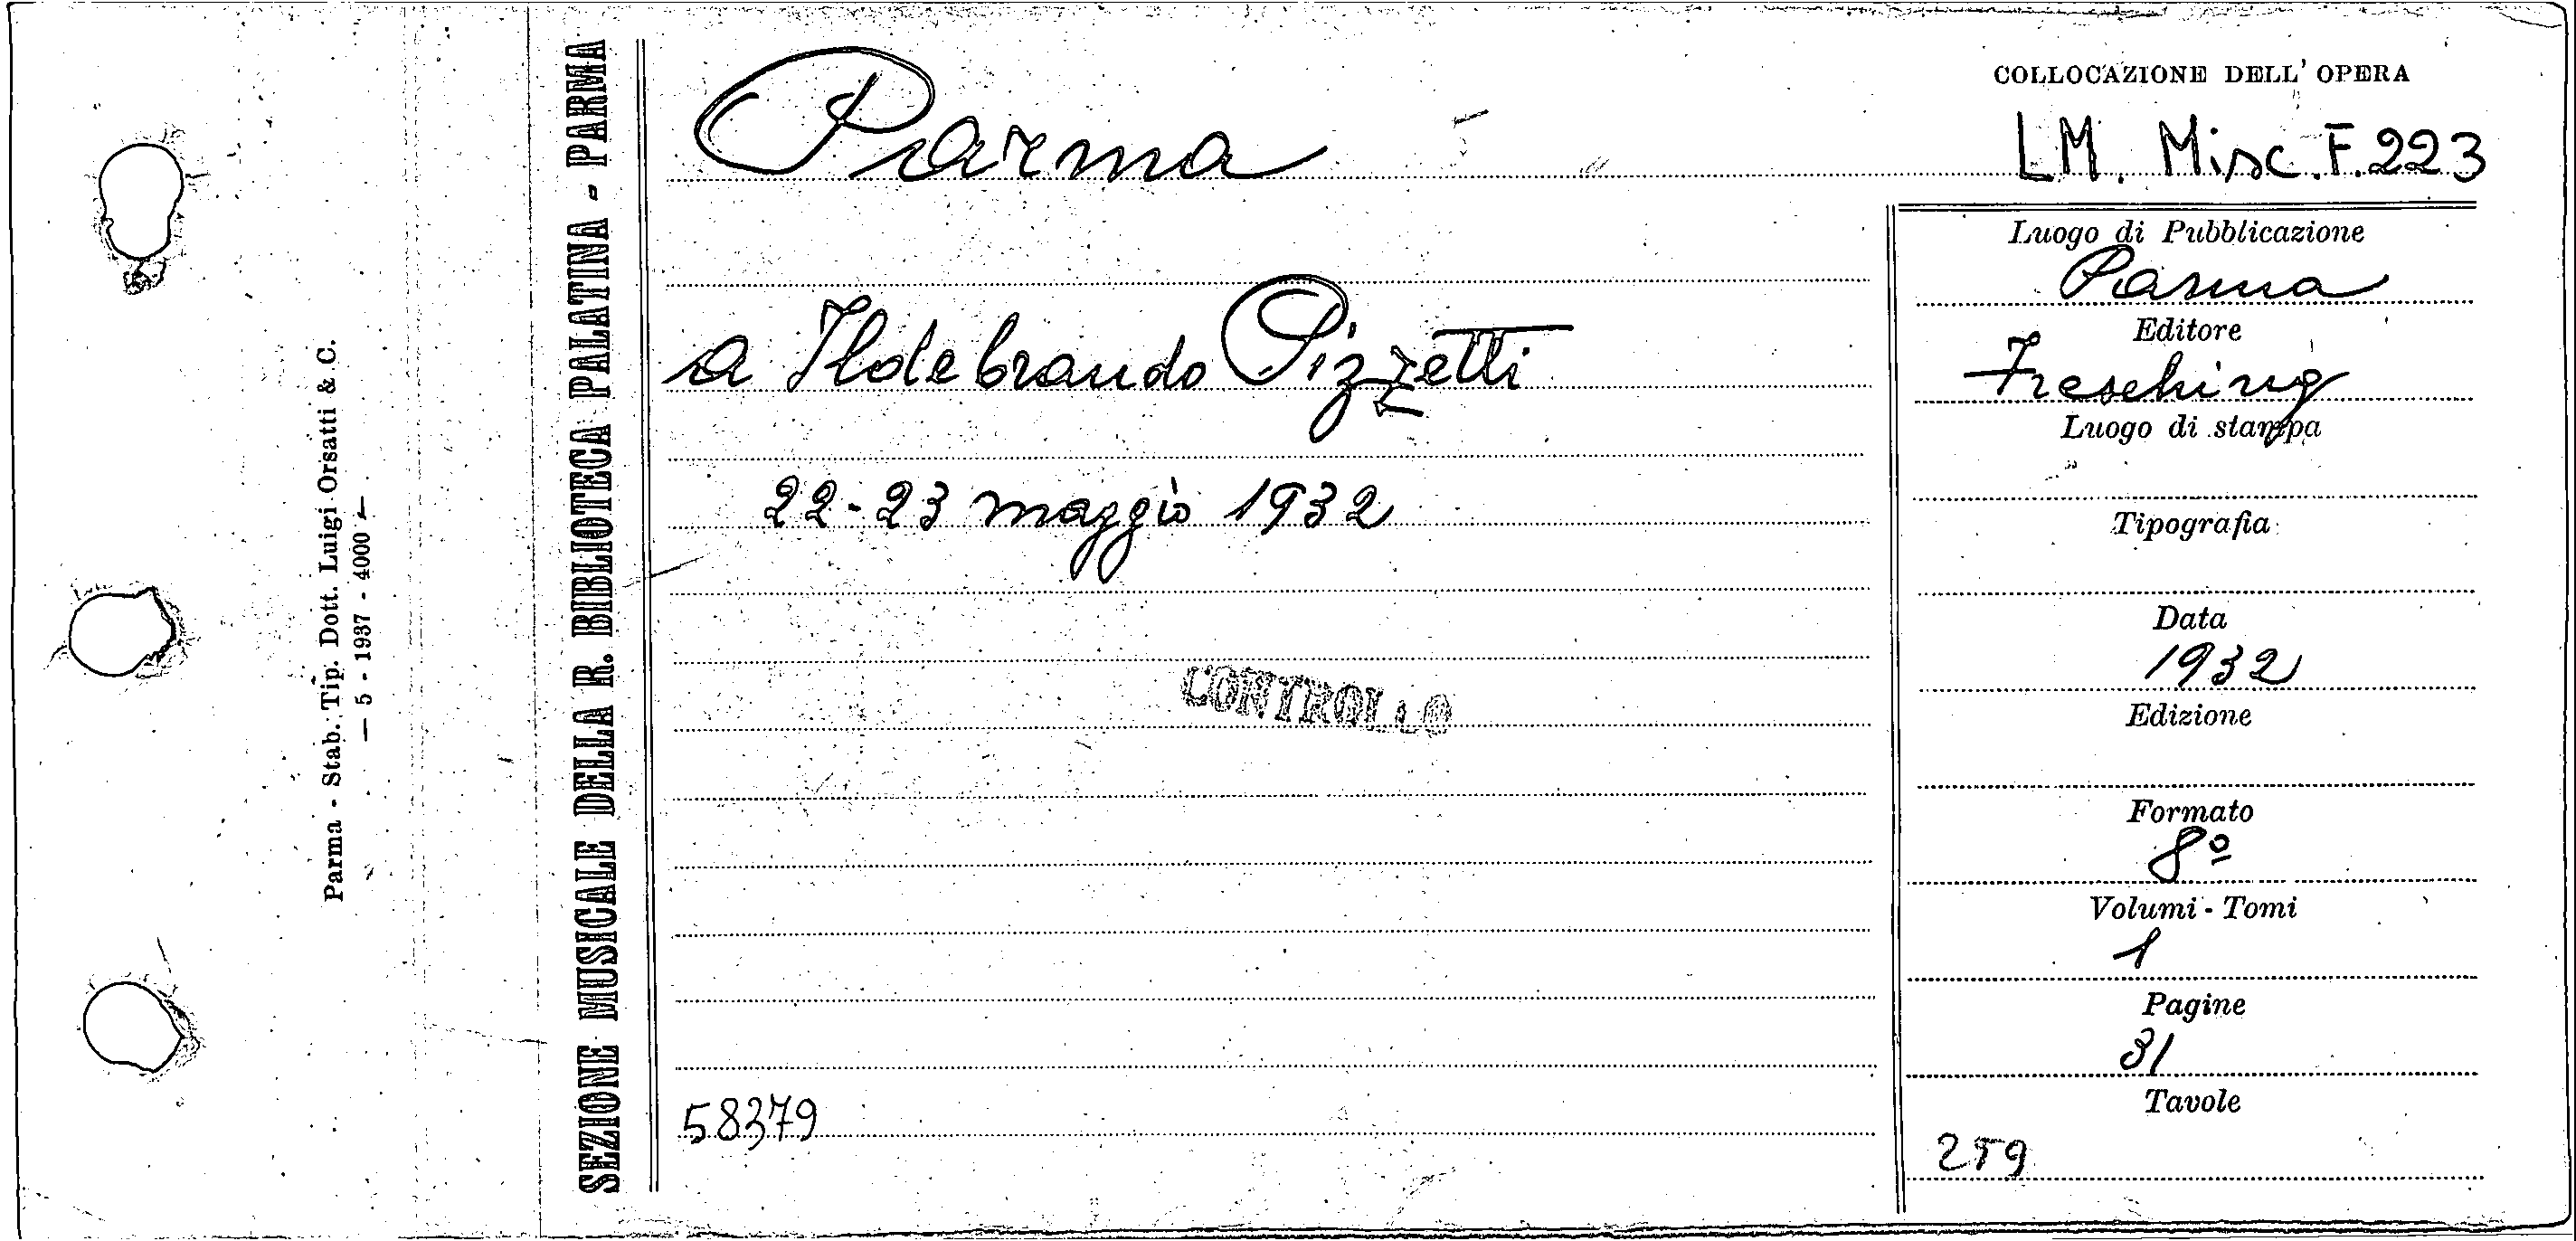 Parma - Stab. Tip. Dott. Luigi Orsatti & C.
— 5 - 1937 - 4000 —
SEZIONE MUSICALE DELLA R. BIBLIOTECA PALATINA - PARMA
Parma
a Ildebrando Pizzetti
22-23 maggio 1932
CONTROLLO
58379
COLLOCAZIONE DELL' OPERA
LM. Misc. F. 223
Luogo di Pubblicazione
Parma
Editore
Fresching
Luogo di stampa
Tipografia
Data
1932
Edizione
Formato
8º
Volumi - Tomi
1
Pagine
31
Tavole
259